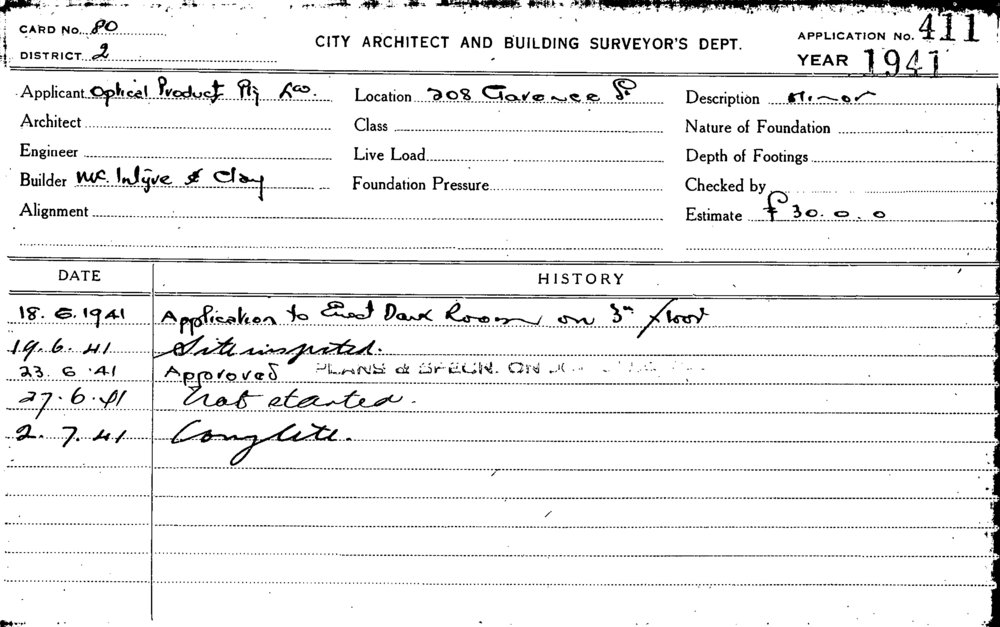 CARD No. 80
DISTRICT 2
CITY ARCHITECT AND BUILDING SURVEYOR'S DEPT.
APPLICATION No. 411
YEAR 1941
Applicant Optical Product Pty Ltd. Location 208 Clarence St Description Minor
Architect Class Nature of Foundation
Engineer Live Load Depth of Footings
Builder Mc. Intyre & Clay Foundation Pressure Checked by
Alignment Estimate £30.0.0
DATE HISTORY
18.6.1941 Application to Erect Dark Room on 3rd floor
19.6.41 Site inspected.
23.6.41 Approved PLANS & SPECN. ON
27.6.41 Not started.
2.7.41 Complete.